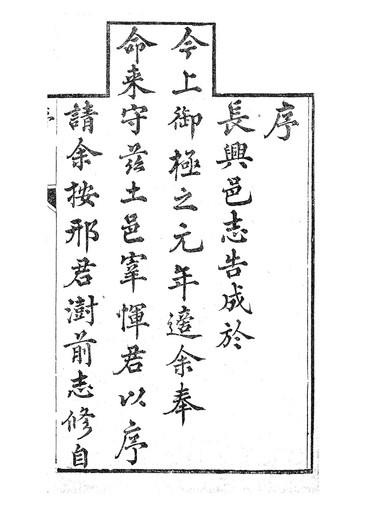 序
長興邑志告成於
今上御極之元年適余奉
命来守兹土邑宰惲君以序
請余按邢君澍前志修自